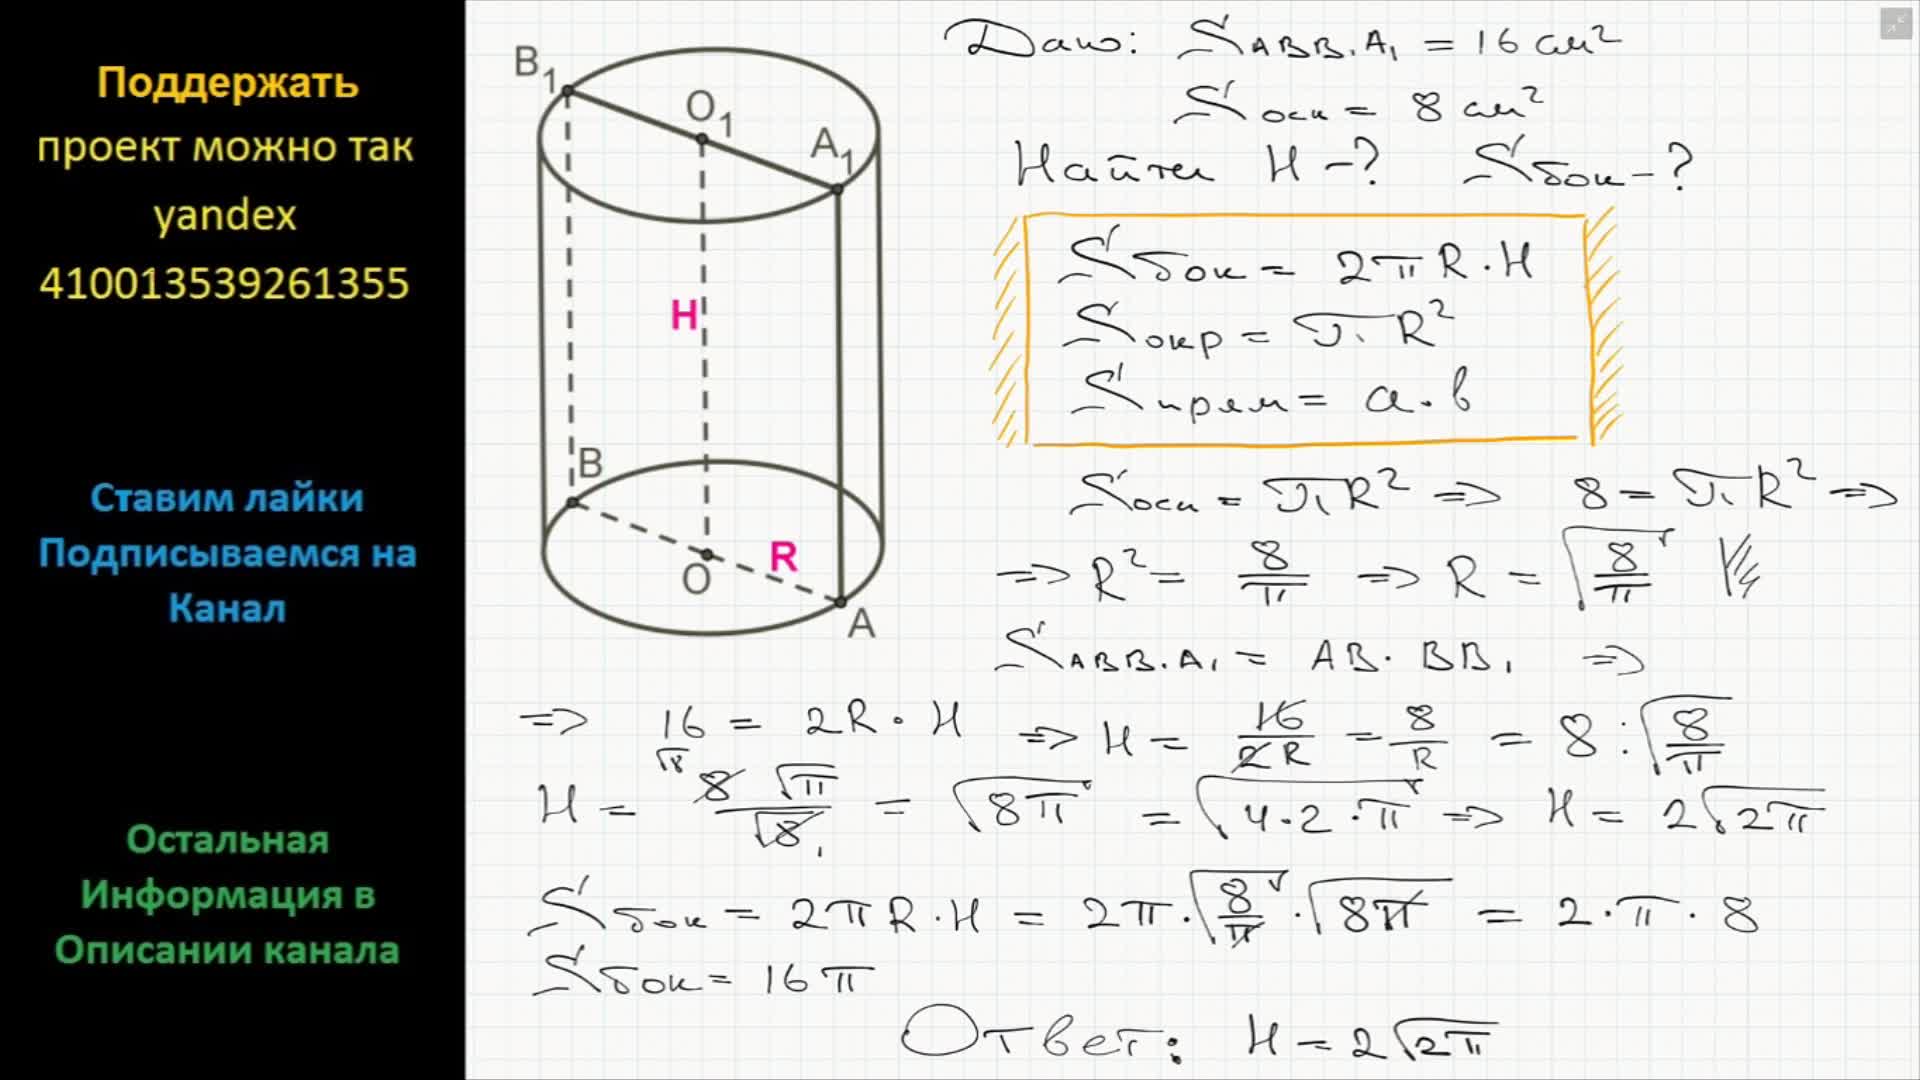 Поддержать
проект можно так
yandex
410013539261355
Ставим лайки
Подписываемся на
Канал
Остальная
Информация в
Описании канала
B₁
O₁
A₁
H
B
R
O
A
Дано: S ABB₁A₁ = 16 см²
S осн = 8 см²
Найти H - ? S бок - ?
S бок = 2π R · H
S окр = π R²
S прям = a · b
S осн = π R² => 8 = π R² =>
=> R² = 8/π => R = √(8/π)
S ABB₁A₁ = AB · BB₁ =>
=> 16 = 2R · H => H = 16/2R = 8/R = 8 : √(8/π)
H = 8√π/√8 = √8π = √4·2·π => H = 2√2π
S бок = 2π R · H = 2π · √(8/π) · √8π = 2 · π · 8
S бок = 16 π
Ответ: H = 2√2π